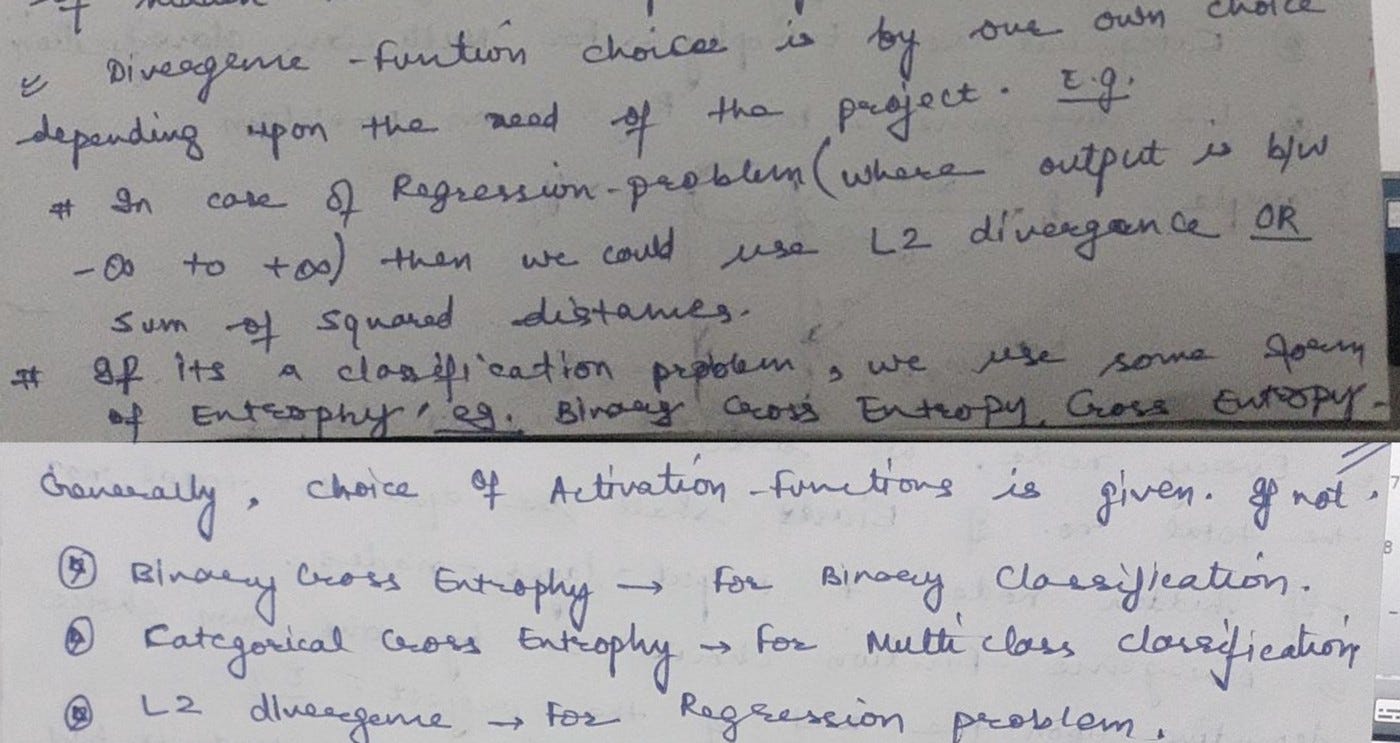 of hidden
Divergence - funtion choices is by our own choice
depending upon the need of the project. E.g.
# In case of Regression-problem (where output is b/w
-∞ to +∞) then we could use L2 divergence OR
sum of squared distances.
# If its a classification problem, we use some form
of Entrophy, eg. Binary Cross Entropy, Cross Entropy.
Generally, choice of Activation-functions is given. If not,
Binary Cross Entrophy → For Binary Classification.
Categorical Cross Entrophy → For Multi class classification
L2 divergence → For Regression problem.
7
8